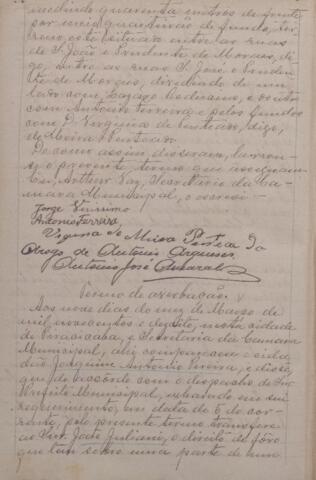 medindo quarenta metros de frente
por meio quarteirão de fundo, ter-
reno este situado entre as ruas
de S. João e Prudente de Moraes, di-
go, entre as ruas S. José e Pruden-
te de Moraes, dividindo de um
lado com Lazaro Codicano, e outro
com Antonio Ferreira e pelos fundos
com D. Virginia de, digo,
de Moura Penteado.
De como assim disseram, lavrou-
se o presente termo que assignam.
Eu, Arthur Vaz, Secretario da Ca-
mara Municipal, o escrevi.
Jorge Verissimo
Antonio Ferreira
Virginia de Penteado
Arogo de Antonio
Antonio José
Termo de averbação.
Aos nove dias do mez de Março de
mil novecentos e dezoito, nesta cidade
de Piracicaba, e Secretaria da Camara
Municipal, ahi compareceu o cida-
dão Joaquim Antonio Pereira, e disse
que de accôrdo com o despacho do Snr.
Prefeito Municipal, exharado em seu
requerimento, em data de 6 do cor-
rente, pelo presente termo transfere
ao Snr. João Juliani, o direito de fôro
que tem sobre uma parte de um